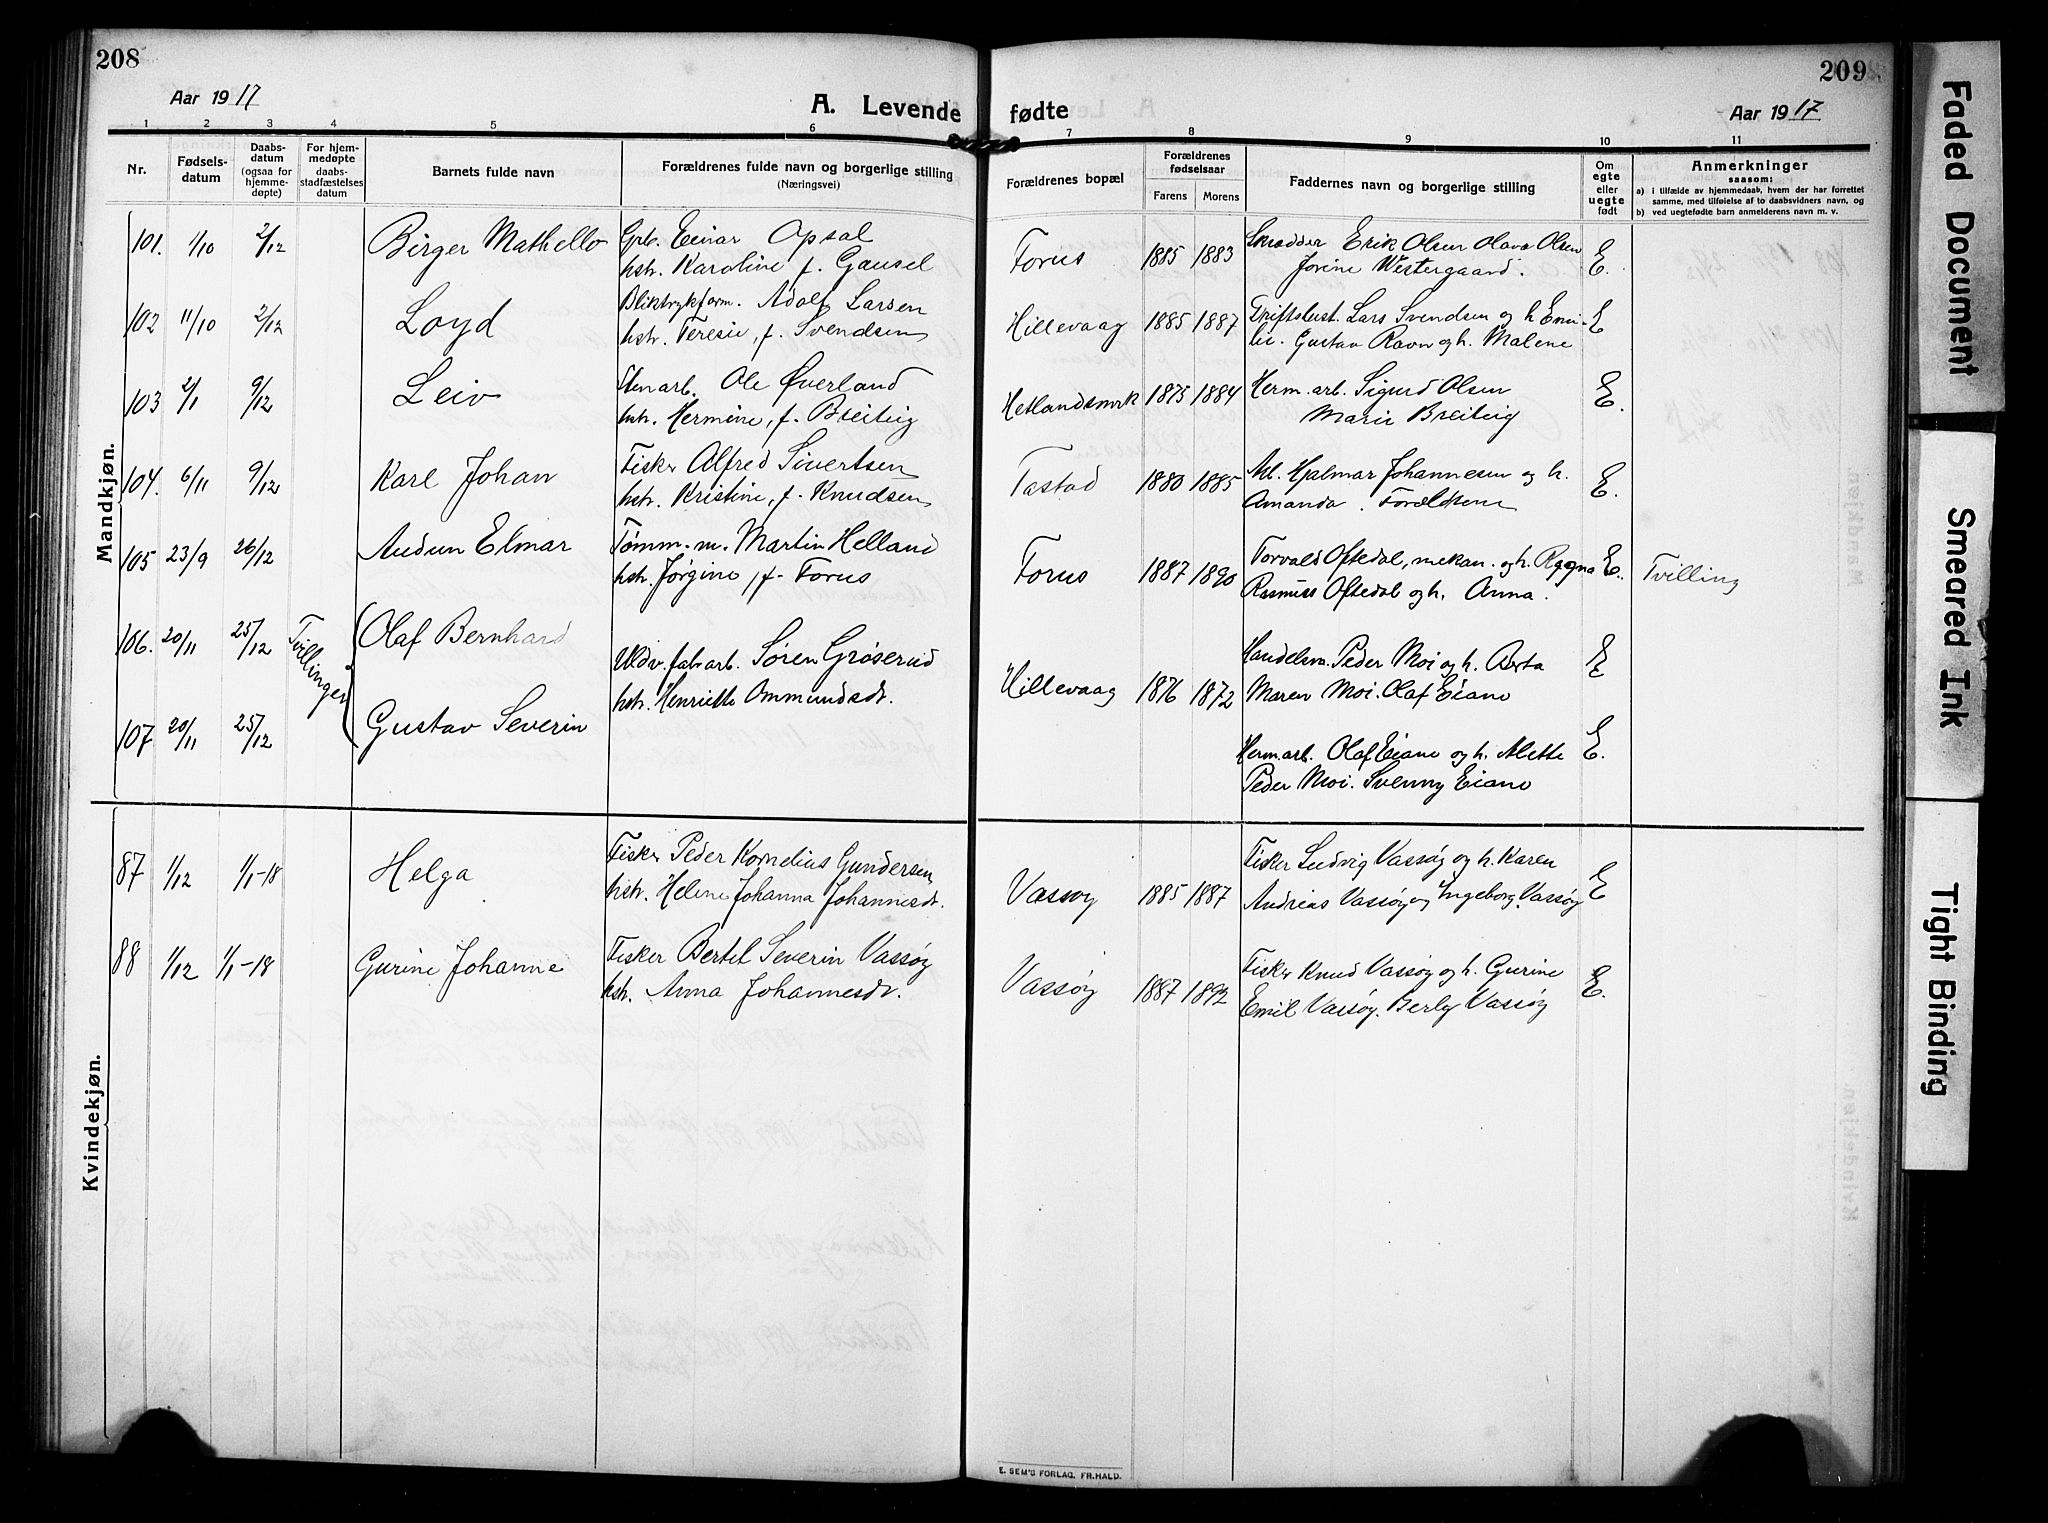 208
Aar 1917
A. Levende
1 2 3 4 5 6
Nr.
Fødsels-
datum
Daabs-
datum
(ogsaa for
hjemme-
døpte)
For hjem-
medøpte
daabs-
stadfæstelses
datum
Barnets fulde navn
Forældrenes fulde navn og borgerlige stilling
(Næringsvei)
Mandkjøn.
101. 1/10 2/12 Birger Mathello Grb. Einar Opsal
hstr. Karoline f. Gausel
102 11/10 2/12 Loyd Bliktrykform. Adolf Larsen
hstr. Teresie, f. Svendsen
103 2/1 9/12 Leiv Stenarb. Ole Øverland
hstr. Hermine, f. Breiteig
104. 6/11 9/12 Karl Johan Fisker Alfred Sivertsen
hstr. Kristine, f. Knudsen
105 23/9 26/12 Audun Elmar Tømm.m. Martin Helland
hstr. Jørgine, f. Forus
106. 20/11 25/12 Tvillinger Olaf Bernhard
Uldv.fabr.arb. Søren Grøserud
hstr. Henriette Ommundsdt.
107 20/11 25/12 Gustav Severin
Kvindekjøn.
87 1/12 1/1-18 Helga Fisker Peder Kornelius Gundersen
hstr. Helene Johanna Johannesdt.
88 1/12 1/1-18 Gurine Johanne Fisker Bertel Severin Vassøy
hstr. Anna Johannesdt.
209
fødte
Aar 1917
7 8 9 10 11
Forældrenes bopæl
Forældrenes
fødselsaar
Farens Morens
Faddernes navn og borgerlige stilling
Om
egte
eller
uegte
født
Anmerkninger
saasom:
a) i tilfælde av hjemmedaab, hvem der har forrettet
samme, med tilføielse af to daabsvidners navn, og
b) ved uegtefødte barn anmelderens navn m. v.
Forus 1885 1883 Skrædder Erik Olsen Olava Olsen E.
Jorine Westergaard.
Hillevaag 1885 1887 Driftsbest. Lars Svendsen og h. Emi- E
lie. Gustav Ravn og h. Malene
Hetlandsmrk 1875 1884 Herm. arb. Sigurd Olsen E.
Marie Breiteig
Tastad 1880 1885 Hjalmar Johannesen og h. E.
Amanda. Forældrene
Forus 1887 1890 Torvald Oftedal, mekan. og h. Ragna E. Tvilling
Rasmus Oftedal og h. Anna.
Hillevaag 1876 1872 Handelsm. Peder Moi og h. Berta E
Maren Moi. Olaf Eiane
Herm.arb. Olaf Eiane og h. Mette E.
Peder Moi. Svenny Eiane
Vassoy 1885 1887 Fisker Ludvig Vassøy og h. Karen E
Andreas Vassøy og Ingeborg Vassøy
Vassøy 1887 1892 Fisker Knud Vassøy og h. Gurine E.
Emil Vassøy. Berly Vassøy
E. SEM'S FORLAG, FR.HALD.
Faded Document
Smeared Ink
Tight Binding